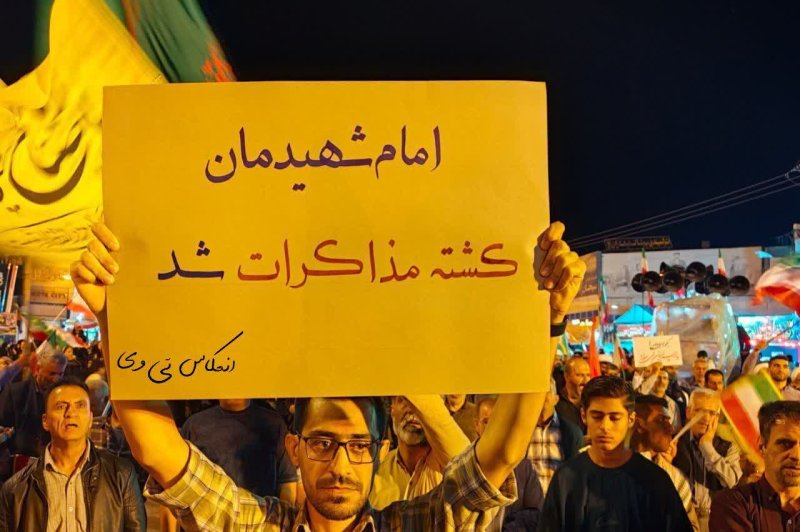 امام شهیدمان
کشته مذاکرات شد
انعکاس تی وی